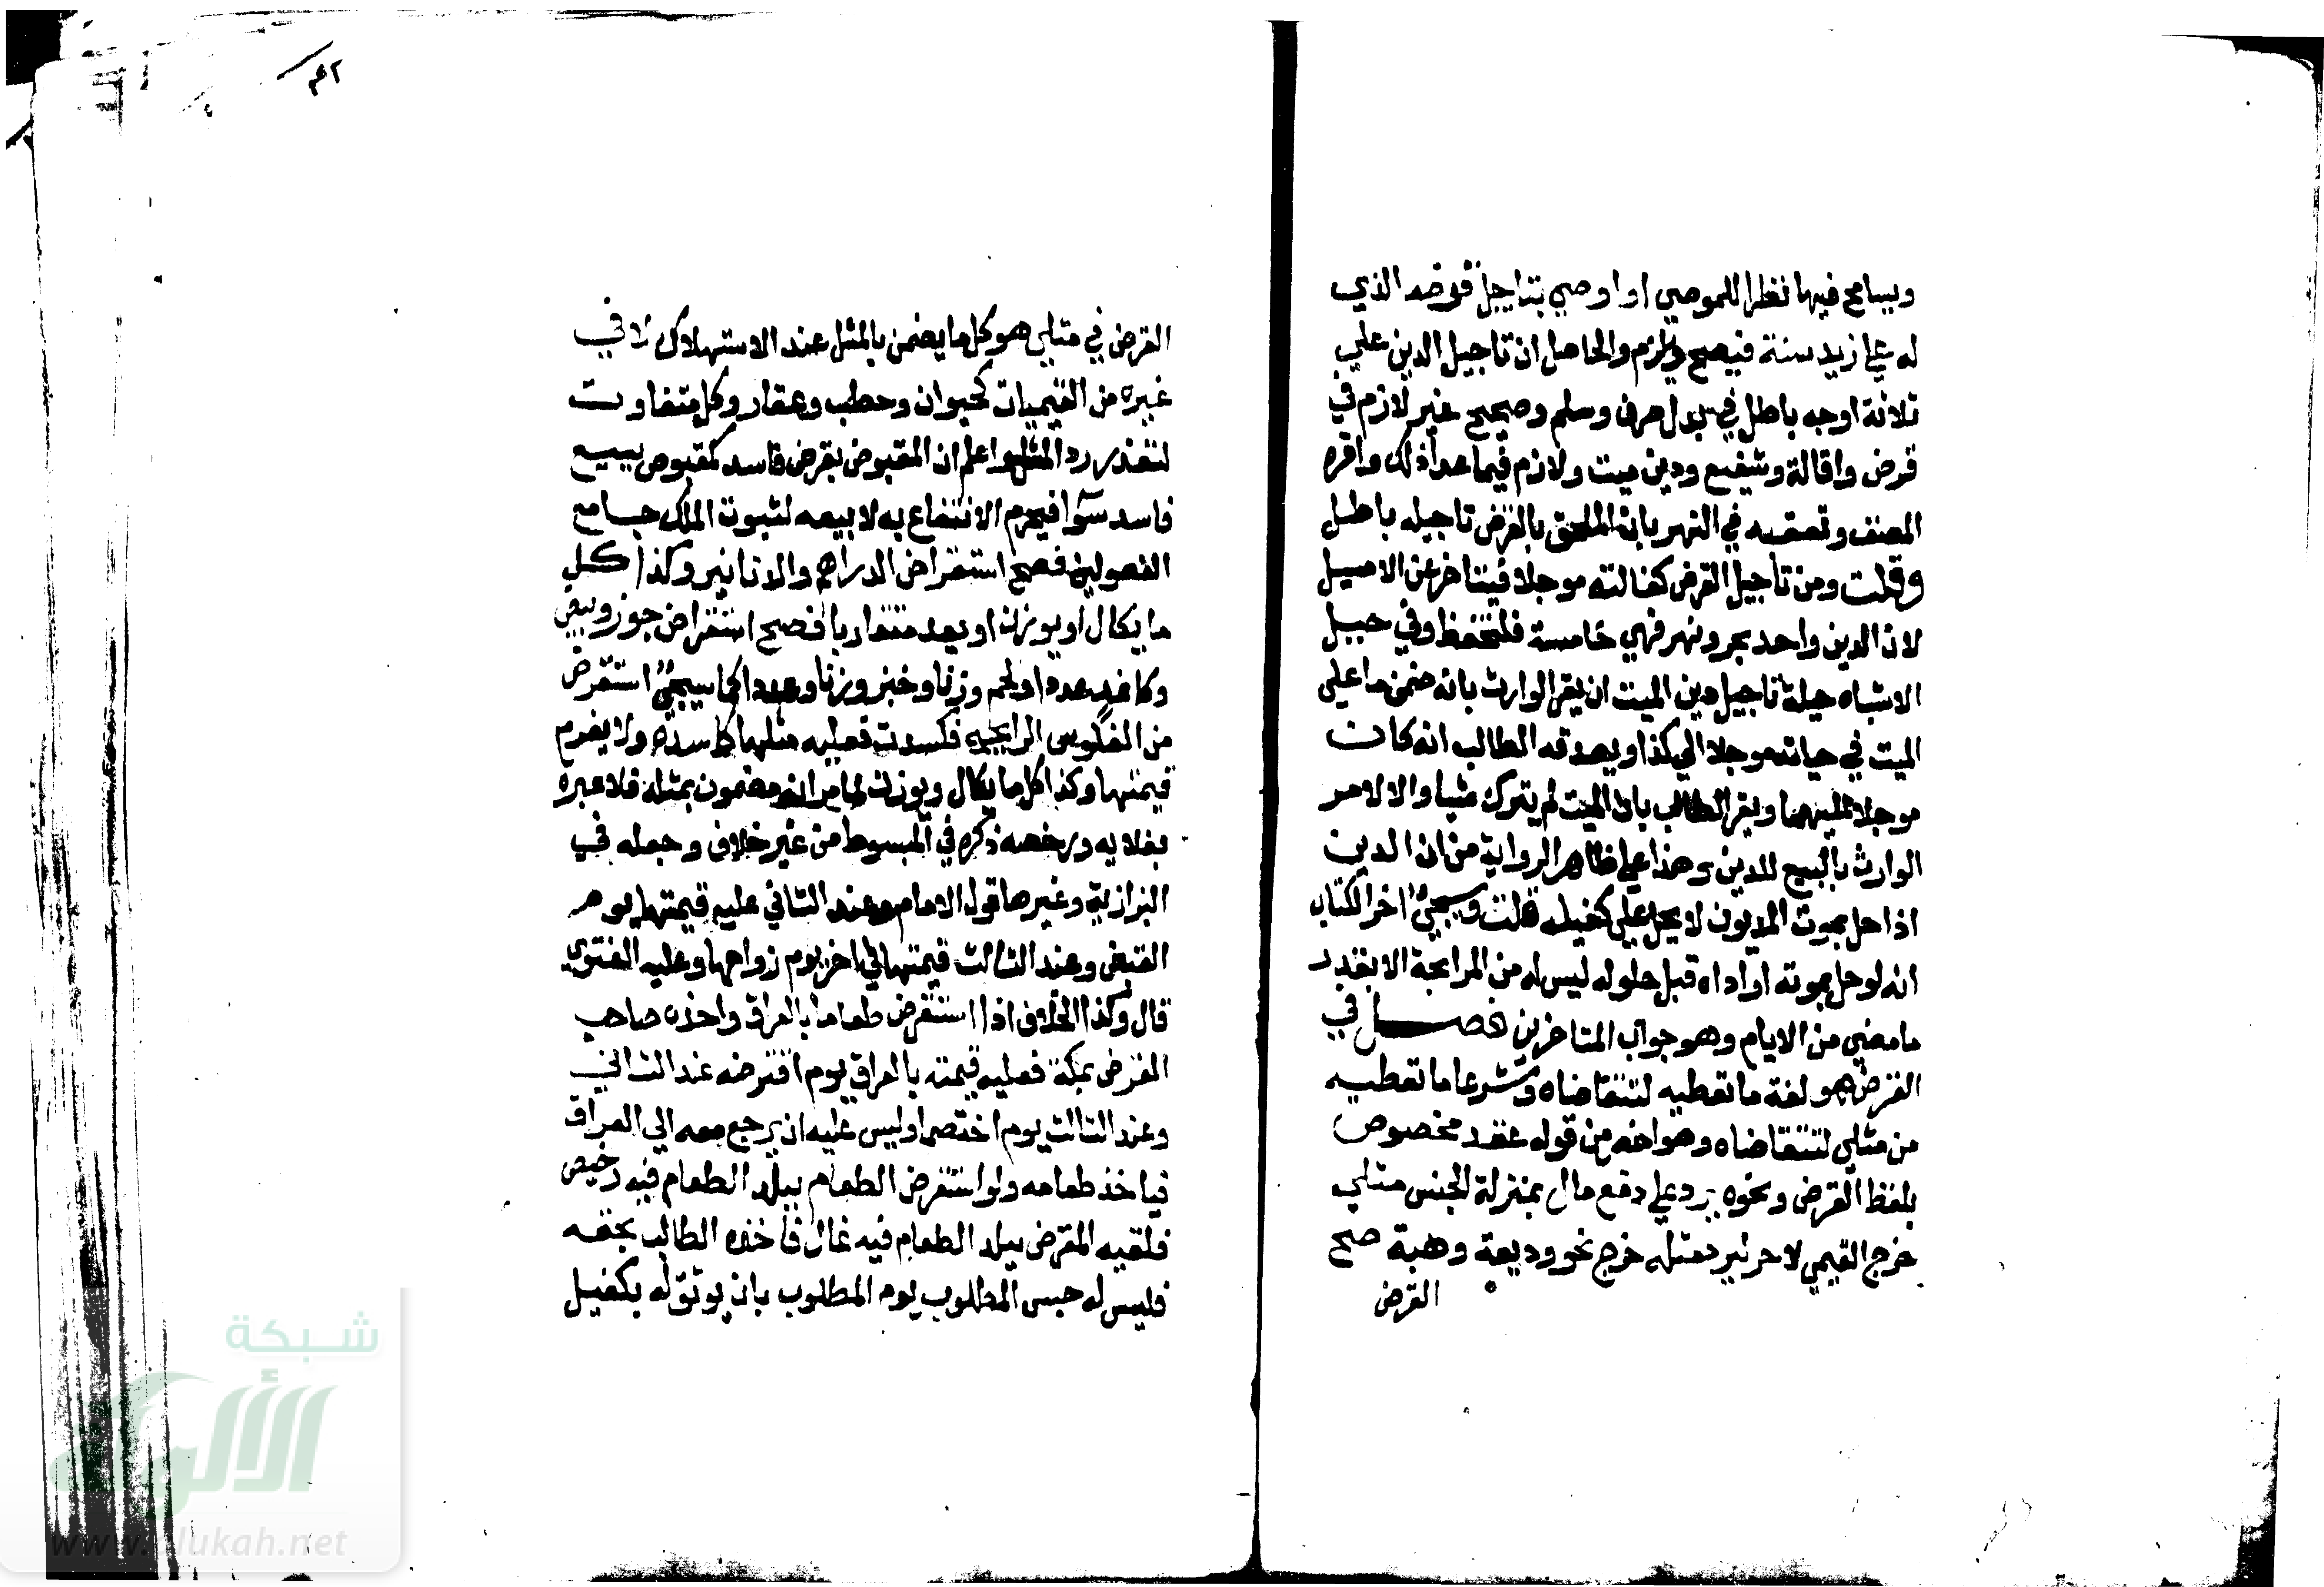 ويسامح فيها نظرا للموصي او اوصي بتاجيل قرضه الذي
له علي زيد سنة فيصح ويلزم والحاصل ان تاجيل الدين علي
ثلاثة اوجه باطل في بدل صرف وسلم وصحيح غير لازم في
قرض واقالة وشفيع ودين ميت ولازم فيما عدا ذلك واقره
المصنف وتعقبه في النهر بان الملحق بالقرض تاجيله باطل
وقلت ومن تاجيل القرض كفالته موجلا فيتاخر عن الاصيل
لان الدين واحد بحر ونهر فهي خامسة فلتحفظ وفي حيل
الاشباه حيلة تاجيل دين الميت ان يقر الوارث بانه ضمن ما علي
الميت في حياته موجلا الي كذا ويصدقه الطالب انه كان
موجلا عليهما ويقر الطالب بان الميت لم يترك شيا والا لامر
الوارث بالبيع للدين وهذا علي ظاهر الرواية من ان الدين
اذا حل بموت المديون لا يحل علي كفيله قلت وسيجيُ اخر الكتاب
انه لو حل بموته او اداه قبل حلوله ليس له من المرابحة الا بقدر
ما مضي من الايام وهو جواب المتاخرين فصل في
القرض هو لغة ما تعطيه لتتقاضاه وشرعا ما تعطيه
من مثلي لتتقاضاه وهو اخصر من قوله عقد مخصوص
بلفظ القرض ونحوه يرد علي دفع مال بمنزلة الجنس مثلي
خرج القيمي لاخر ليرد مثله خرج نحو وديعة وهبة صح
القرض
٤٢
القرض في مثلي هو كل ما يضمن بالمثل عند الاستهلاك لا في
غيره من القيميات كحيوان وحطب وعقار وكل متفاوت
لتعذر رد المثل واعلم ان المقبوض بقرض فاسد كمقبوض ببيع
فاسد سوآ فيحرم الانتفاع به لا بيعه لثبوت الملك جامع
الفصولين فصح استقراض الدراهم والدنانير وكذا كل
ما يكال او يوزن او يعد متقاربا فصح استقراض جوز وبيض
وكاغد عددا ولحم وزنا وخبز وزنا وعددا كما سيجيُ استقرض
من الفلوس الرايجه فكسدت فعليه مثلها كاسدة ولا يغرم
قيمتها وكذا كل ما يكال ويوزن لما مر انه مضمون بمثله فلا عبرة
بغلايه ورخصه ذكره في المبسوط من غير خلاف وجعله في
البزازية وغيرها قول الامام وعند الثاني عليه قيمتها يوم
القبض وعند الثالث قيمتها في اخر يوم رواجها وعليه الفتوي
قال وكذا الخلاف اذا استقرض طعاما بالعراق واخذه صاحب
القرض بمكة فعليه قيمته بالعراق يوم اقترضه عند الثاني
وعند الثالث يوم اختصما وليس عليه ان يرجع معه الي العراق
فياخذ طعامه ولو استقرض الطعام ببلد الطعام فيه رخيص
فلقيه المقرض ببلد الطعام فيه غال فاخذه الطالب بحقه
فليس له حبس المطلوب يوم المطلوب بان يوثق له بكفيل
شبكة
الألوكة
www.alukah.net